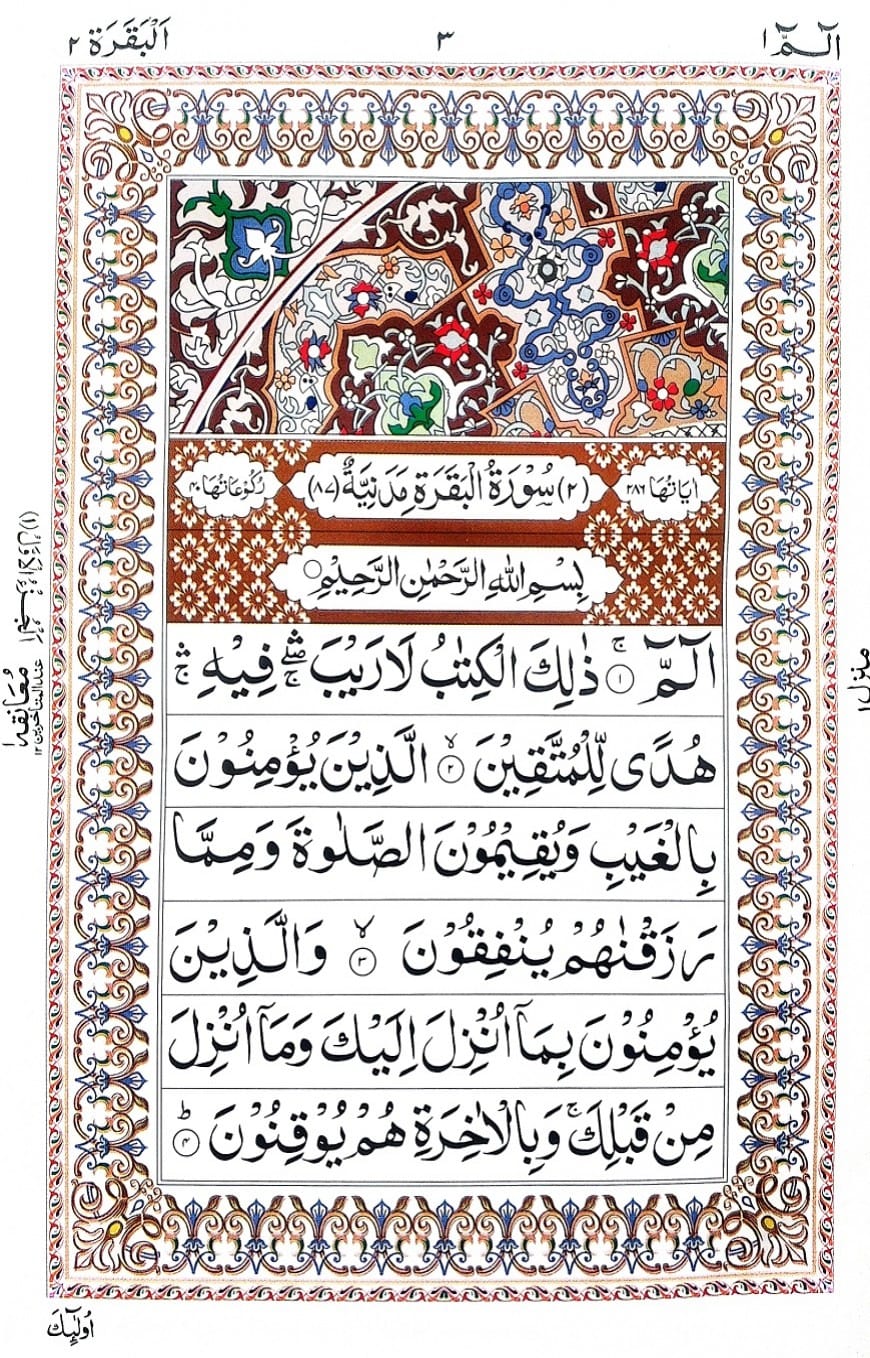 الٓـمّٓ ١
٣
اَلْبَقَرَة ٢
اٰيَاتُهَا ٢٨٦
(٢) سُوْرَةُ الْبَقَرَةِ مَدَنِيَّةٌ (٨٧)
رُكُوْعَاتُهَا ٤٠
بِسْمِ اللهِ الرَّحْمٰنِ الرَّحِيْمِ
الٓـمّٓ ۚ ﴿١﴾ ذٰلِكَ الْكِتٰبُ لَا رَيْبَ ۛۖۚ فِيْهِ ۛۚ
هُدًى لِّلْمُتَّقِيْنَ ۙ ﴿٢﴾ الَّذِيْنَ يُؤْمِنُوْنَ
بِالْغَيْبِ وَيُقِيْمُوْنَ الصَّلٰوةَ وَمِمَّا
رَزَقْنٰهُمْ يُنْفِقُوْنَ ۙ ﴿٣﴾ وَالَّذِيْنَ
يُؤْمِنُوْنَ بِمَآ اُنْزِلَ اِلَيْكَ وَمَآ اُنْزِلَ
مِنْ قَبْلِكَ ۚ وَبِالْاٰخِرَةِ هُمْ يُوْقِنُوْنَ ؕ ﴿٤﴾
منزل ١
مُعَانقة ١
عند المتأخرين ١٢
اُولٰٓئِكَ